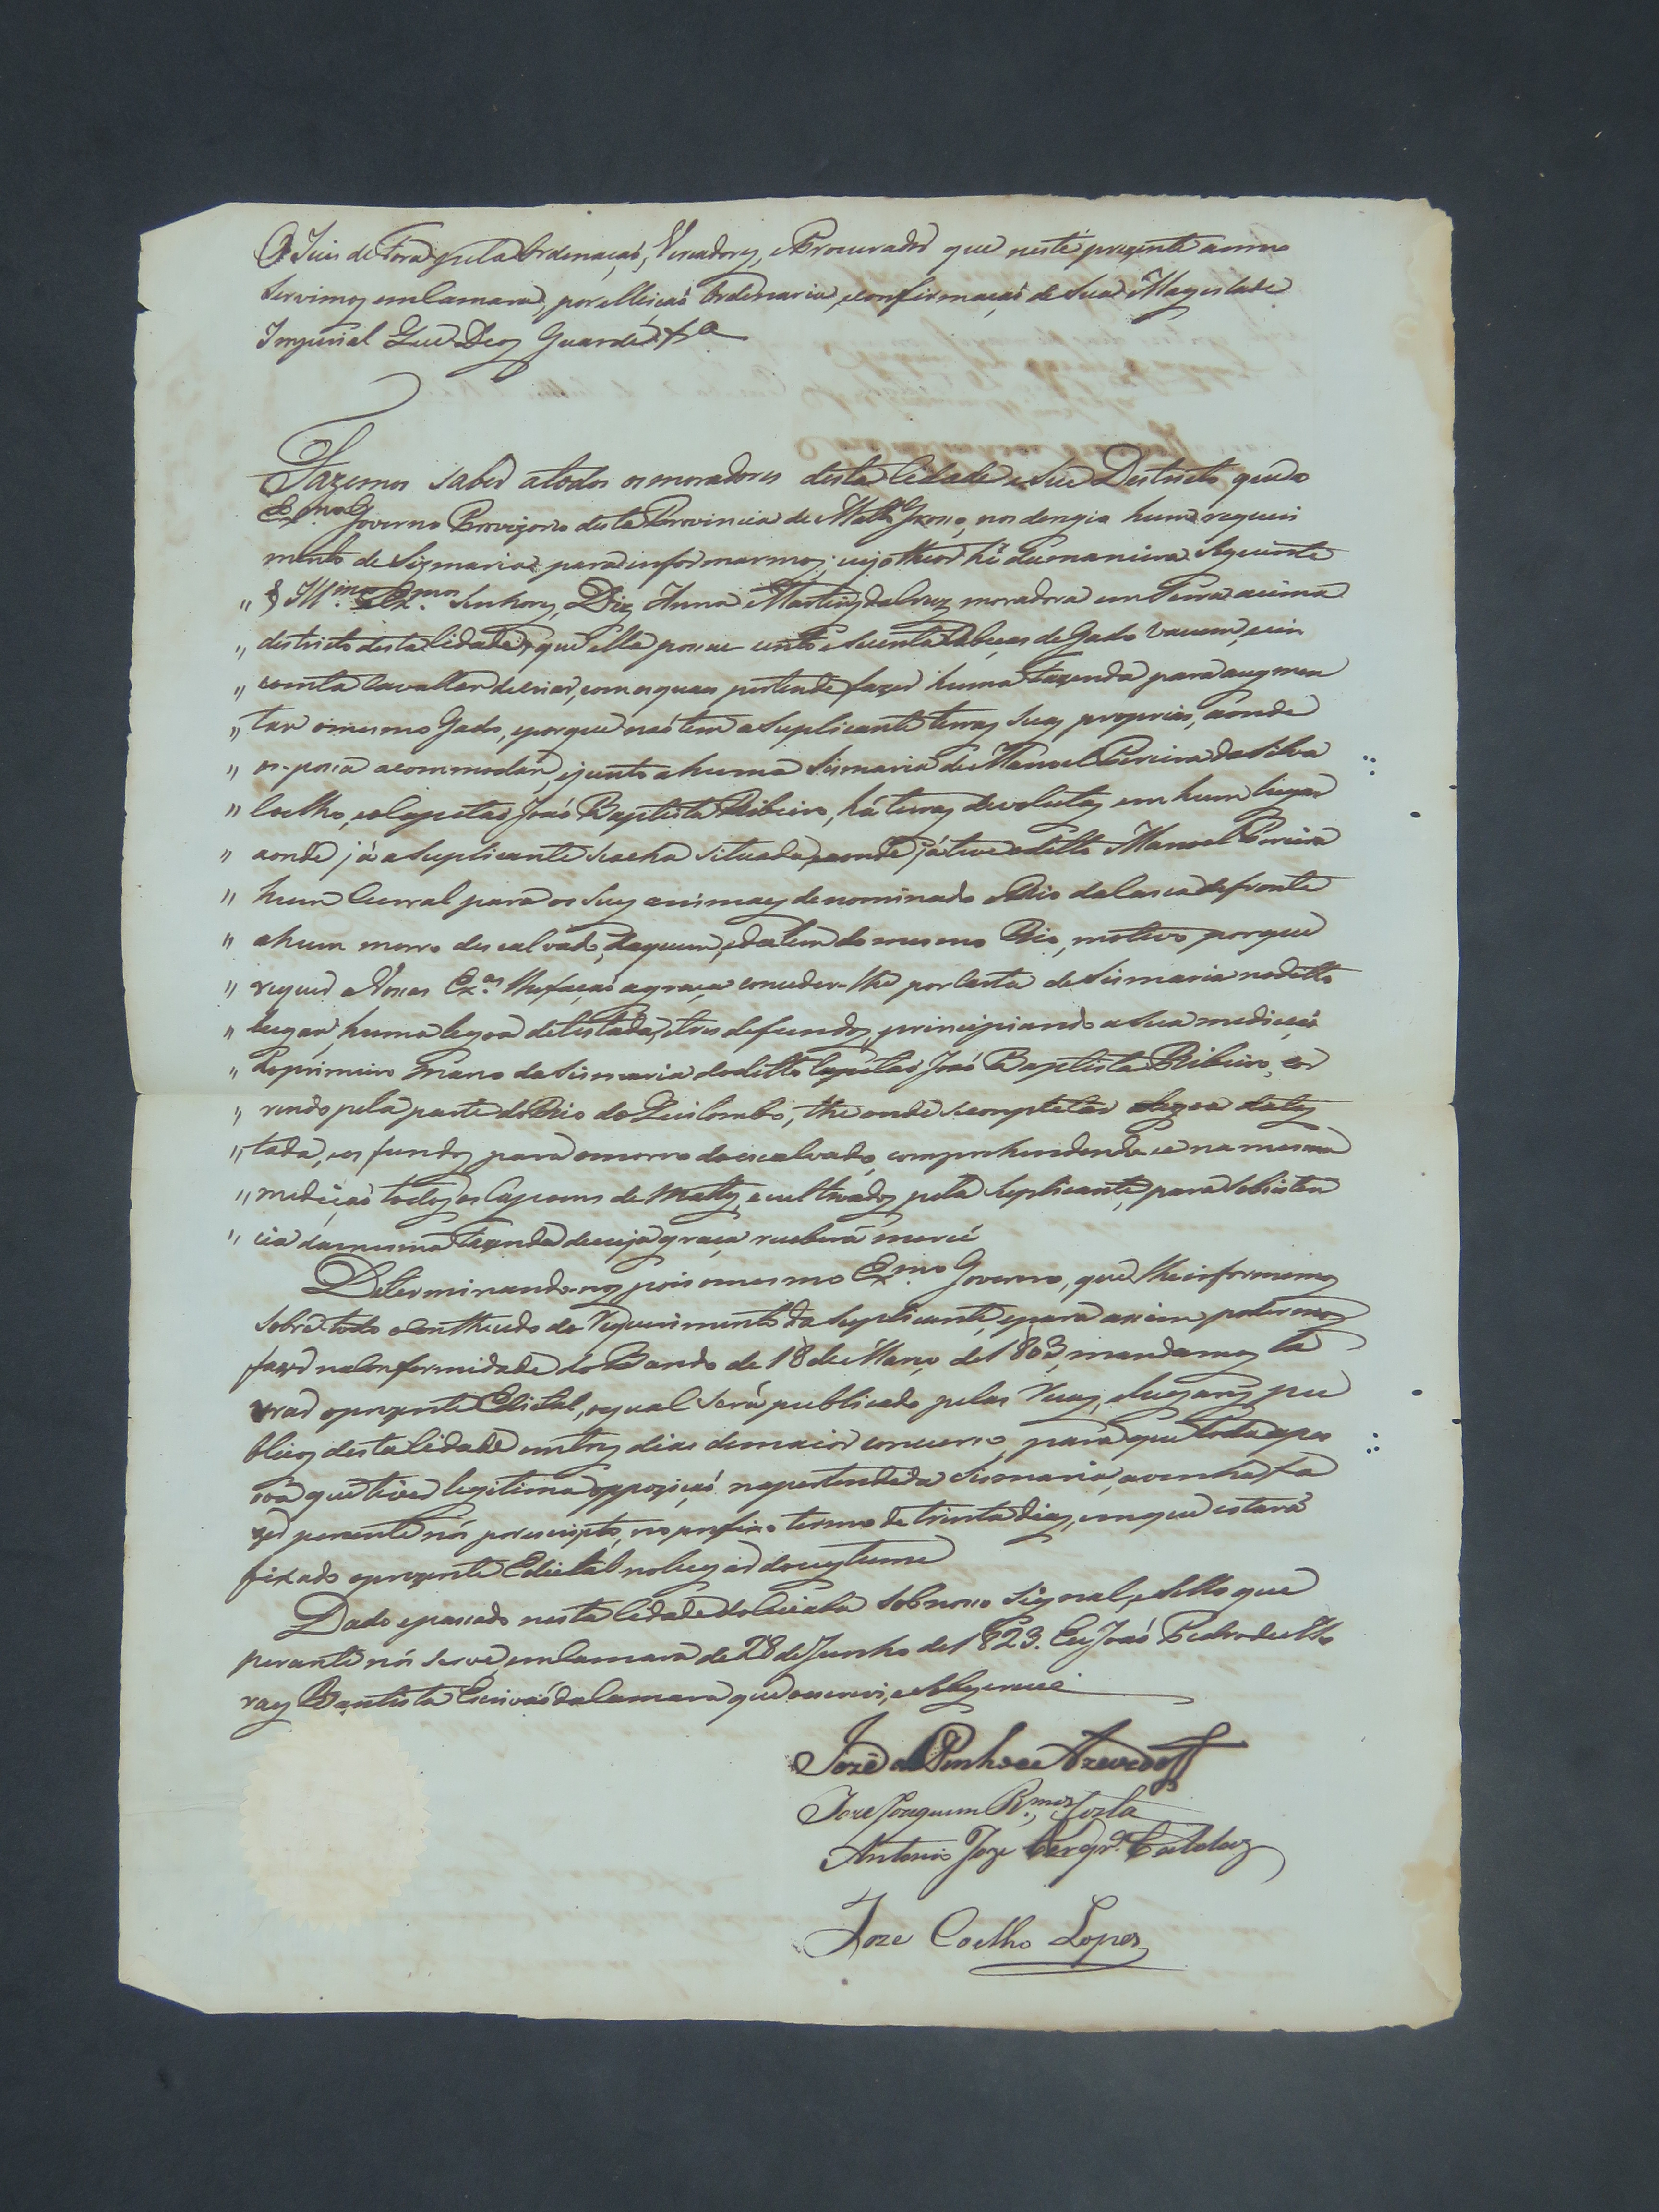 O Juis de Fora pela Ordenaçaõ, Vereadores, e Procurador que neste prezente anno
servimos em Camara, por elleiçaõ Ordenaria, e confirmaçaõ de Sua Magestade
Imperial Que Deos Guarde &a
Fazemos saber a todos os moradores desta Cidade e seu Destricto que do
Exmo Governo Provizorio desta Provincia de Matto Grosso, nos dirigio hum requeri
mento de Sismaria para informarmos; cujo theor hé da maneira Seguinte
" Illmos Exmos Senhores, Diz Anna Martins da Cruz moradora em Serra acima
" districto desta Cidade, que ella possue cento e secenta Cabeças de Gado vacum, e cin
" coenta Cavallar de criar, com os quaes pertende fazer huma Fazenda para augmen
" tar o mesmo Gado, e porque naõ tem a Suplicante terras suas proprias, aonde
" os possa acommodar, e junto a huma Sismaria de Manoel Pereira da Silva
" Coelho, e o Capitaõ Joaõ Baptista Ribeiro, há terras devolutas em hum lugar
" aonde já a Suplicante se acha situada, e aonde já teve o ditto Manoel Pereira
" hum Curral para os seus animaes denominado o Rio da Casca defronte
" a hum morro descalvado, daquem, e dalem do mesmo Rio, motivo porque
" requer a Vossas Exas lhe façaõ a graça conceder-lhe por Carta de Sismaria no ditto
" lugar, huma legoa de testada, e tres de fundos, principiando a sua mediçaõ
" do primeiro Piaõ da Sismaria do ditto Capitaõ Joaõ Baptista Ribeiro, cor
" rendo pela parte do Rio do Quilombo, the onde se completar a legoa da tes
" tada, e os fundos para o morro do escalvado, comprehendendo-se na mesma
" mediçaõ todos os Capoens de Mattos, e cultivados pela Suplicante, para Sobsisten
" cia da mesma Fazenda de cuja graça receberá mercé
Determinando-nos pois o mesmo Exmo Governo, que lhe informemos
sobre todo o Contheudo do Requerimento da Suplicante, e para assim podermos
fazer na Conformidade do Bando de 18 de Março de 1803, mandamos la
vrar o prezente Edictal, o qual será publicado pelas Ruas, e lugares pu
blicos desta Cidade em tres dias de maior concurso, para que toda a pes
soa que tiver legitima oppoziçaõ na pertendida Sismaria, a venha fa
zer perante nós por escripto, no prefixo termo de trinta dias, em que estará
fixado o prezente Edictal no lugar do custume
Dado e passado nesta Cidade do Cuiabá sob nosso Signal, e Sello que
perante nós serve, em Camara de 28 de Junho de 1823. Eu Joaõ Pedro de Mo
raes Bautista Escrivaõ da Camara que o escrevi, e Sobscrevi
José de Pinho e Azevedo
Joze Joaquim Rmos Costa
Antonio Joze Cerqra Caldas
Joze Coelho Lopes